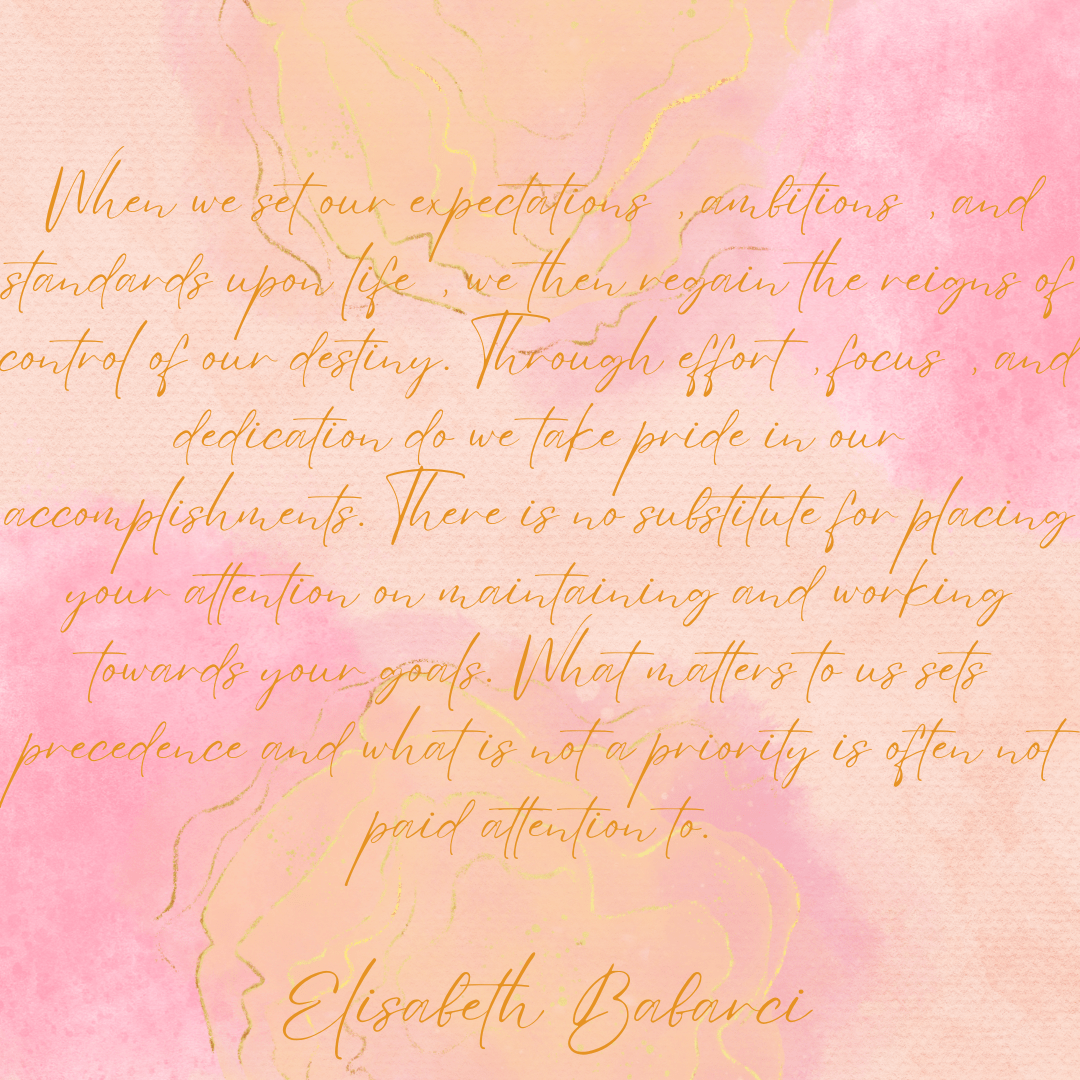 When we set our expectations , ambitions , and
standards upon life , we then regain the reigns of
control of our destiny. Through effort , focus , and
dedication do we take pride in our
accomplishments. There is no substitute for placing
your attention on maintaining and working
towards your goals. What matters to us sets
precedence and what is not a priority is often not
paid attention to.
Elisabeth Babarci